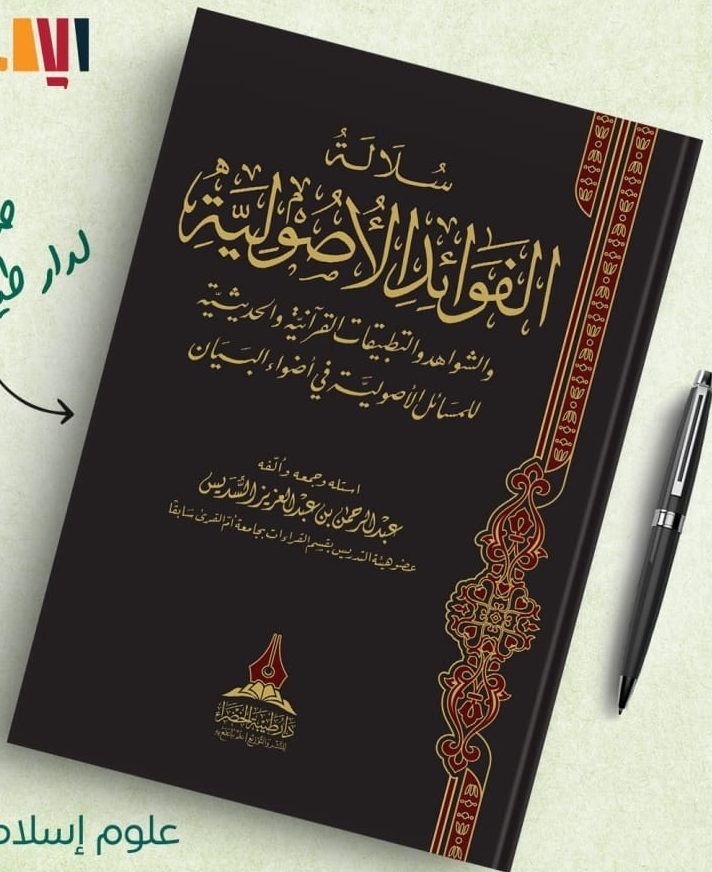 سُلَالَةُ
الفَوَائِدِ الأُصُولِيَّةِ
والشواهد والتطبيقات القرآنيّة والحديثيّة
للمسائل الأصوليّة في أضواء البيان
استله وجمعه وألّفه
عبد الرحمن بن عبد العزيز السّديس
عضو هيئة التدريس بقسم القراءات بجامعة أمّ القرى سَابقًا
دار طيبة الخضراء
علوم إسلا